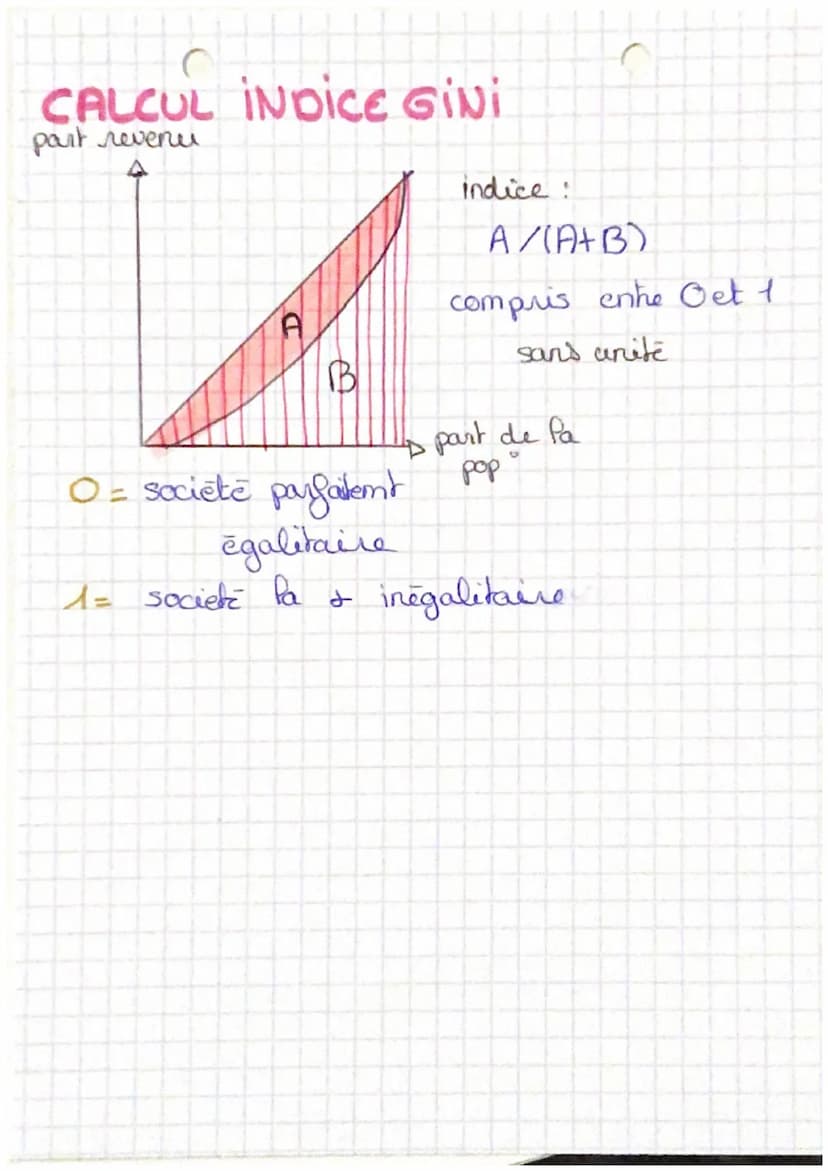 CALCUL INDICE GINI
part revenu
indice :
A /(A+B)
compris entre 0 et 1
sans unité
A
B
part de la
pop°
0 = société parfaitemt
égalitaire
1 = societé la + inégalitaire